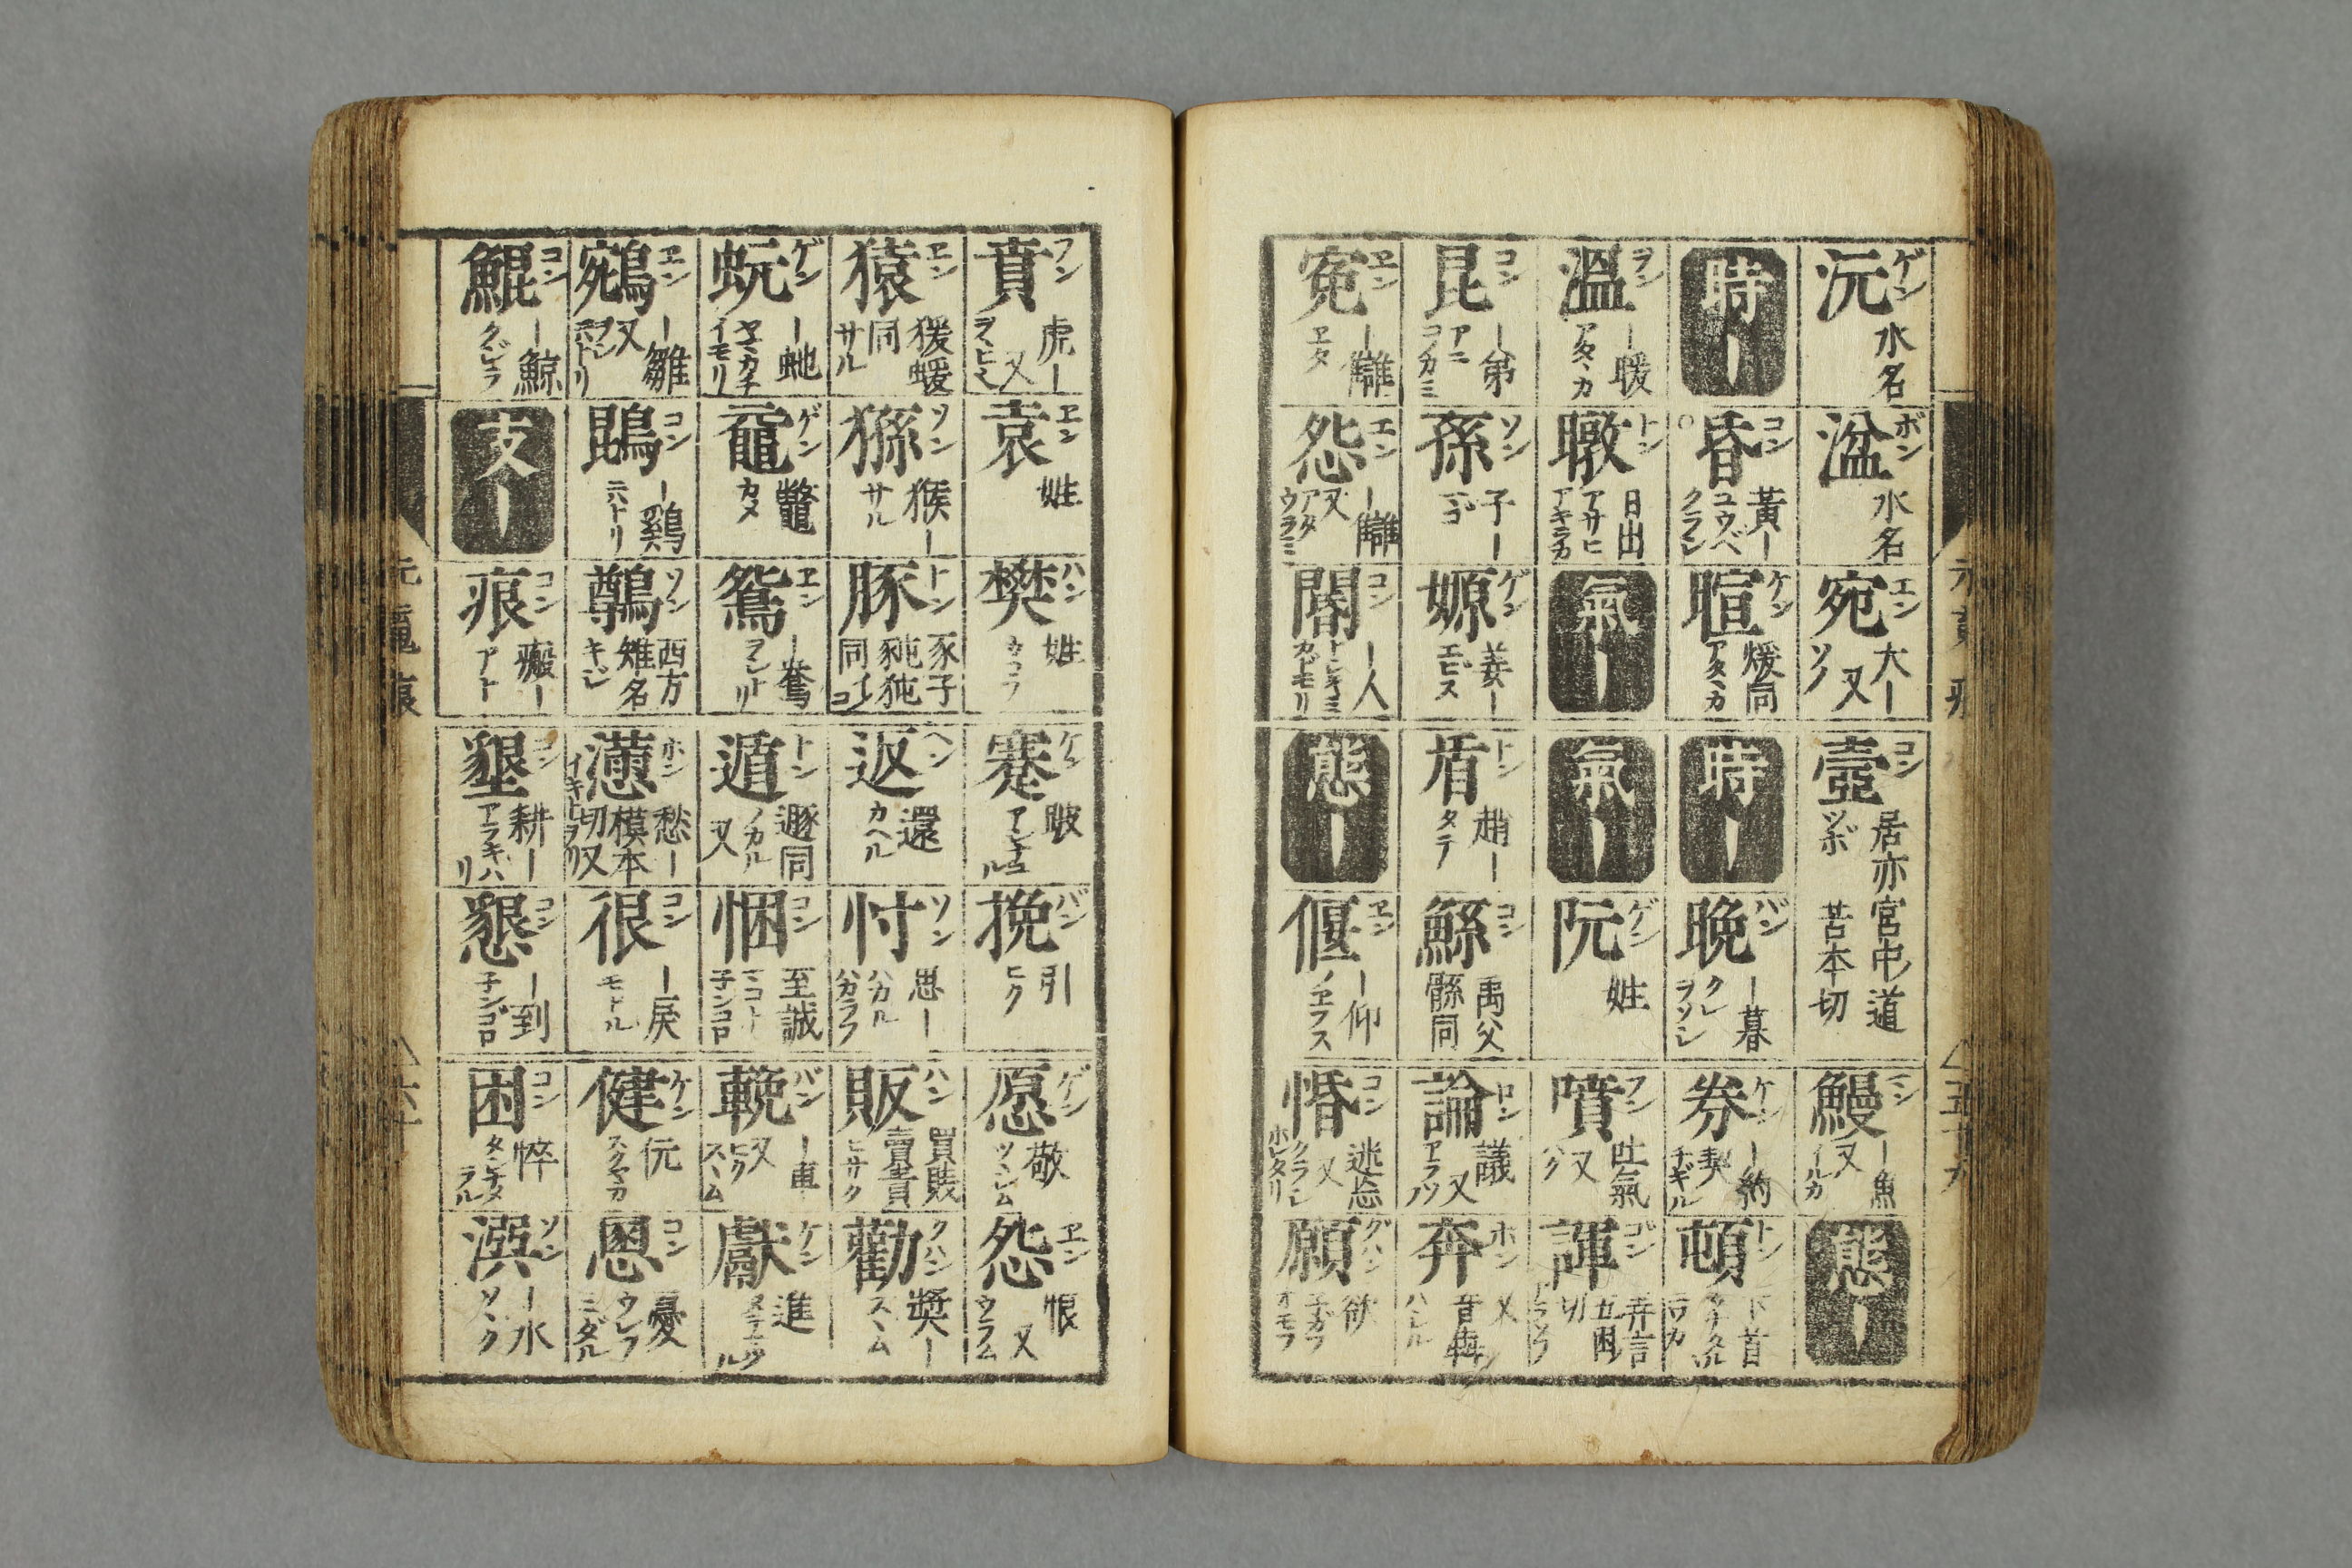 沅 ゲン 水名
湓 ボン 水名
宛 エン 大｜ 又 ソノ
壼 コン 居亦宮中道 ツボ 苦本切
鰻 ｜魚 又 イルカ
態｜
時｜
昏 コン 黃｜ ユウベ クラシ
暄 ケン 煖同 アタヽカ
時｜
晩 バン ｜暮 クレ ヲソシ
券 ケン ｜約 契 チギル
頓 トン 下首
溫 ヲン ｜暖 アタヽカ
暾 トン 日出 アサヒ アキラカ
氣｜
氣｜
阮 ゲン 姓
噴 フン 吐氣 又 ハク
諢 ゴン 弄言 五困切
昆 コン ｜弟 アニ コノカミ
孫 ソン 子｜ マゴ
嫄 ゲン 姜｜ エビス
盾 トン 趙｜ タテ
鯀 コン 禹父 鮌同
論 ロン 議 又 アラソフ
奔 ホン 又音犇 ハシル
寃 エン ｜讎 アタ
怨 エン ｜讎 又 アタ ウラミ
閽 コン ｜人 カドモリ
態｜
偃 エン ｜仰 ノエフス
惛 コン 迷忘 又 クラシ ホレタリ
願 グハン 欲 子ガフ オモフ
賁 フン 虎｜ 又
袁 エン 姓
樊 ハン 姓 カコフ
蹇 ケン 跛 アシナエ
挽 バン 引 ヒク
愿 ゲン 敬 ツヽシム
怨 エン 恨 又 ウラム
猿 エン 猨蝯同 サル
猻 ソン 猴｜ サル
豚 トン 豕子 㹠独同
返 ヘン 還 カヘル
忖 ソン 思｜ ハカル ハカラフ
販 ハン 買賤賣貴 ヒサク
勸 クハン 奬｜ スヽム
蚖 ゲン ｜虵 ヤマカヽチ イモリ
黿 ゲン 鼈 カメ
鴛 エン ｜鴦 ヲシトリ
遁 トン 遯同 ノカル 又
悃 コン 至誠 マコト 子ンコロ
輓 バン ｜車 又 ヒク スヽム
獻 ケン 進 タテマツル
鵷 エン ｜雛 又
鵾 コン ｜鷄 ニハトリ
鷷 ソン 西方雉名 キジ
懣 ホン 愁｜ 模本切 又 イキトヲリ
很 コン ｜戾 モドル
健 ケン 伉 スクヤカ
慁 コン 憂 ウレフ ミダル
鯤 コン ｜鯨 クジラ
支｜
痕 コン 瘢｜ アト
墾 コン 耕｜ アラキハリ
懇 コン ｜到 子ンゴロ
困 コン 悴
潠 ソン ｜水 ソヽク